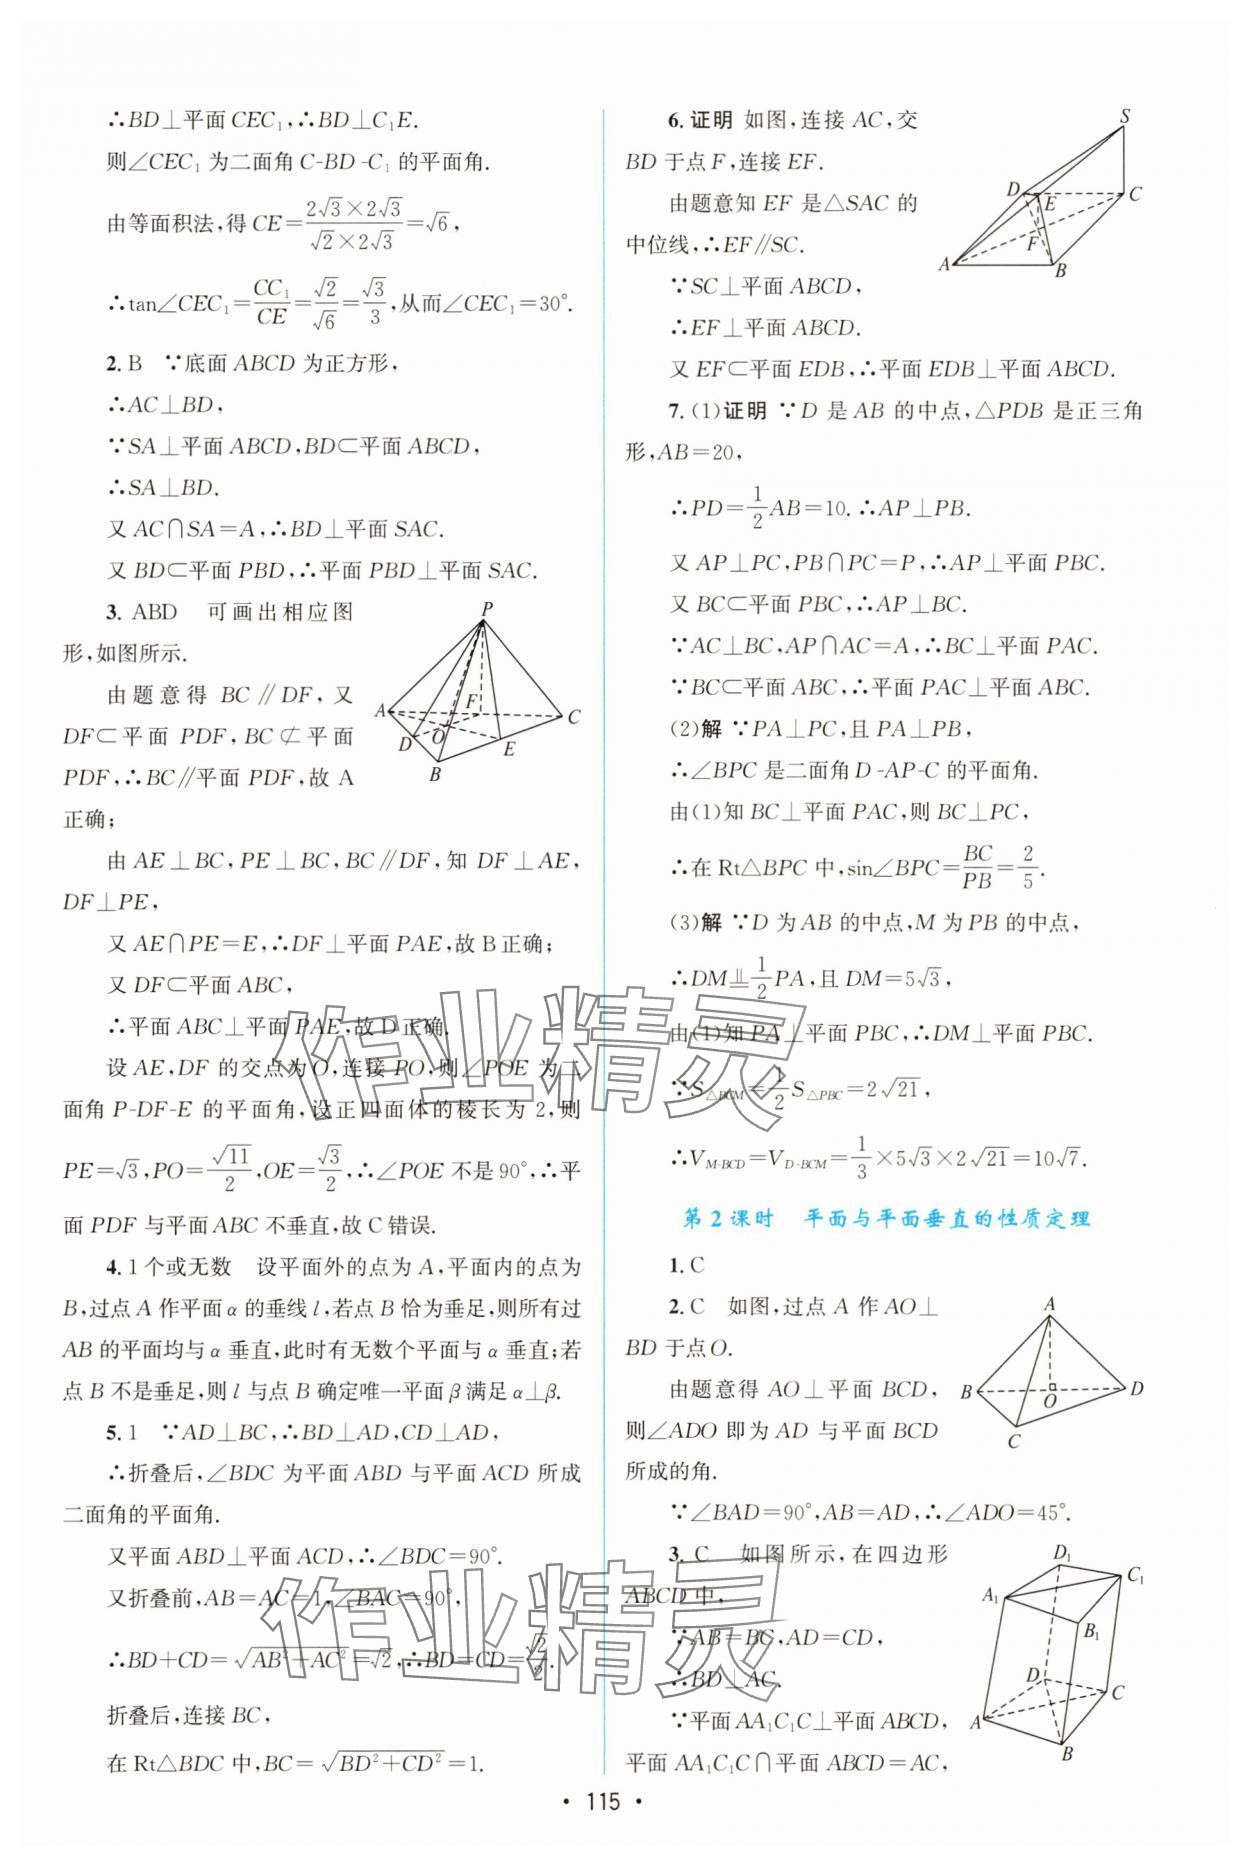 ∴BD⊥平面CEC₁,∴BD⊥C₁E.
则∠CEC₁为二面角C-BD-C₁的平面角.
由等面积法,得CE=\frac{2√3×2√3}{√2×2√3}=√6,
∴tan∠CEC₁=\frac{CC₁}{CE}=\frac{√2}{√6}=\frac{√3}{3},从而∠CEC₁=30°.
2. B ∵底面ABCD为正方形,
∴AC⊥BD,
∵SA⊥平面ABCD,BD⊂平面ABCD,
∴SA⊥BD.
又AC∩SA=A,∴BD⊥平面SAC.
又BD⊂平面PBD,∴平面PBD⊥平面SAC.
3. ABD 可画出相应图
形,如图所示.
由题意得BC∥DF,又
DF⊂平面PDF,BC⊄平面
PDF,∴BC∥平面PDF,故A
正确;
P
A
F
C
D
O
E
B
由AE⊥BC,PE⊥BC,BC∥DF,知DF⊥AE,
DF⊥PE,
又AE∩PE=E,∴DF⊥平面PAE,故B正确;
又DF⊂平面ABC,
∴平面ABC⊥平面PAE,故D正确.
设AE,DF的交点为O,连接PO,则∠POE为二
面角P-DF-E的平面角,设正四面体的棱长为2,则
PE=√3,PO=\frac{√11}{2},OE=\frac{√3}{2},∴∠POE不是90°,∴平
面PDF与平面ABC不垂直,故C错误.
4. 1个或无数 设平面外的点为A,平面内的点为
B,过点A作平面α的垂线l,若点B恰为垂足,则所有过
AB的平面均与α垂直,此时有无数个平面与α垂直;若
点B不是垂足,则l与点B确定唯一平面β满足α⊥β.
5. 1 ∵AD⊥BC,∴BD⊥AD,CD⊥AD,
∴折叠后,∠BDC为平面ABD与平面ACD所成
二面角的平面角.
又平面ABD⊥平面ACD,∴∠BDC=90°.
又折叠前,AB=AC=1,∠BAC=90°,
∴BD+CD=√(AB²+AC²)=√2,∴BD=CD=\frac{√2}{2}.
折叠后,连接BC,
在Rt△BDC中,BC=√(BD²+CD²)=1.
6.证明 如图,连接AC,交
BD于点F,连接EF.
由题意知EF是△SAC的
中位线,∴EF∥SC.
∵SC⊥平面ABCD,
S
D
E
C
F
A
B
∴EF⊥平面ABCD.
又EF⊂平面EDB,∴平面EDB⊥平面ABCD.
7.(1)证明 ∵D是AB的中点,△PDB是正三角
形,AB=20,
∴PD=\frac{1}{2}AB=10.∴AP⊥PB.
又AP⊥PC,PB∩PC=P,∴AP⊥平面PBC.
又BC⊂平面PBC,∴AP⊥BC.
∵AC⊥BC,AP∩AC=A,∴BC⊥平面PAC.
∵BC⊂平面ABC,∴平面PAC⊥平面ABC.
(2)解 ∵PA⊥PC,且PA⊥PB,
∴∠BPC是二面角D-AP-C的平面角.
由(1)知BC⊥平面PAC,则BC⊥PC,
∴在Rt△BPC中,sin∠BPC=\frac{BC}{PB}=\frac{2}{5}.
(3)解 ∵D为AB的中点,M为PB的中点,
∴DM⫫\frac{1}{2}PA,且DM=5√3,
由(1)知PA⊥平面PBC,∴DM⊥平面PBC.
∵S△BCM=\frac{1}{2}S△PBC=2√21,
∴V_{M-BCD}=V_{D-BCM}=\frac{1}{3}×5√3×2√21=10√7.
第2课时 平面与平面垂直的性质定理
1. C
2. C 如图,过点A作AO⊥
BD于点O.
由题意得AO⊥平面BCD,
则∠ADO即为AD与平面BCD
所成的角.
A
B
O
D
C
∵∠BAD=90°,AB=AD,∴∠ADO=45°.
3. C 如图所示,在四边形
ABCD中,
∵AB=BC,AD=CD,
∴BD⊥AC.
∵平面AA₁C₁C⊥平面ABCD,
平面AA₁C₁C∩平面ABCD=AC,
D₁
C₁
A₁
B₁
D
C
A
B
作业精灵
作业精灵
· 115 ·